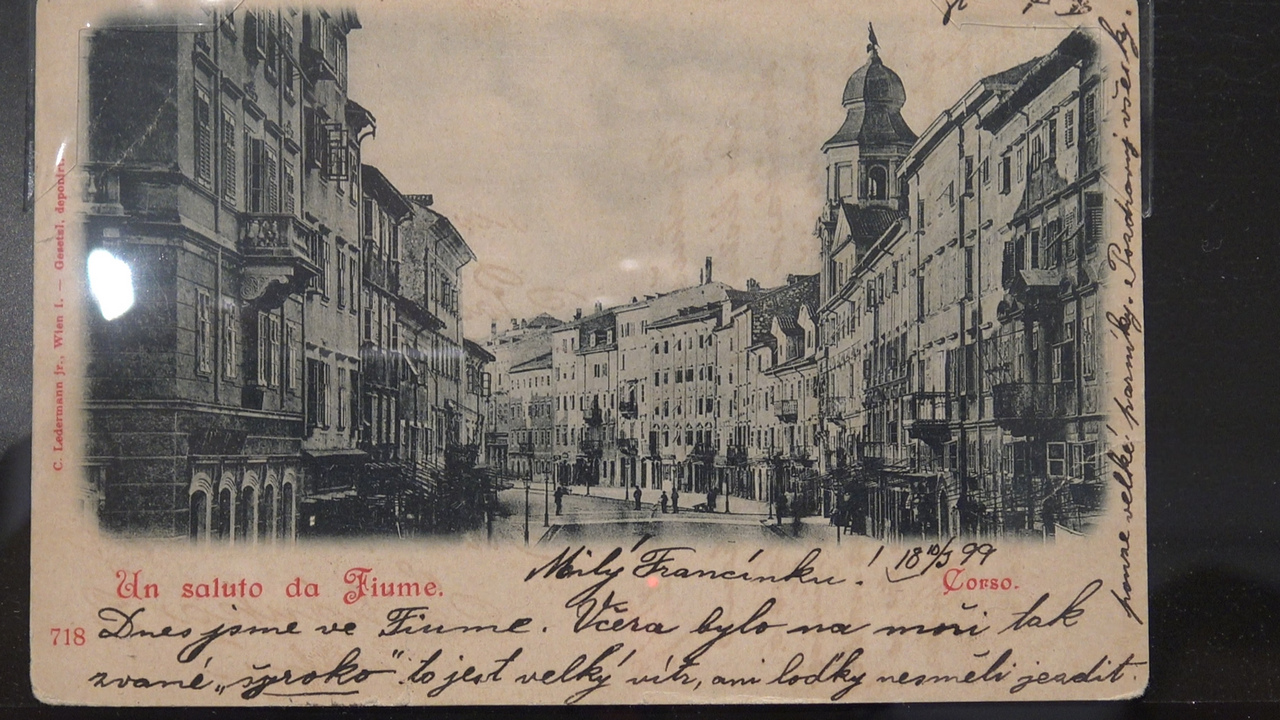 C. Ledermann jr., Wien I. — Gesetzl. deponirt.
Un saluto da Fiume.
Corso.
718
Milý Francínku! 18 10/3 99
Dnes jsme ve Fiume. Včera bylo na moři tak
zvané „široko“ to jest velký vítr, ani loďky nesměli jezdit.
pouze velké parníky. Pozdravuj všecky.